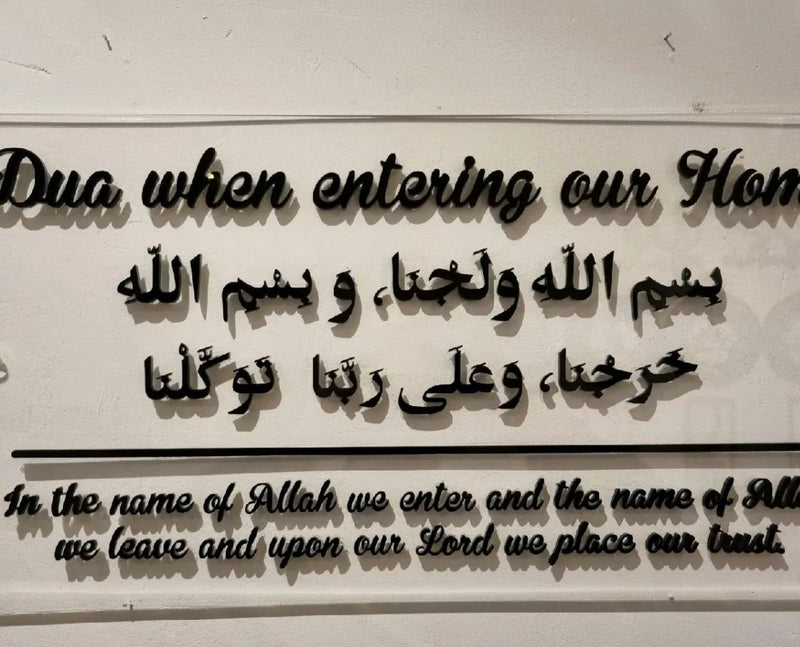 Dua when entering our Hom
بِسْمِ اللّٰهِ وَلَجْنَا، وَ بِسْمِ اللّٰهِ
خَرَجْنَا، وَعَلَى رَبَّنَا تَوَكَّلْنَا
In the name of Allah we enter and the name of All
we leave and upon our Lord we place our trust.